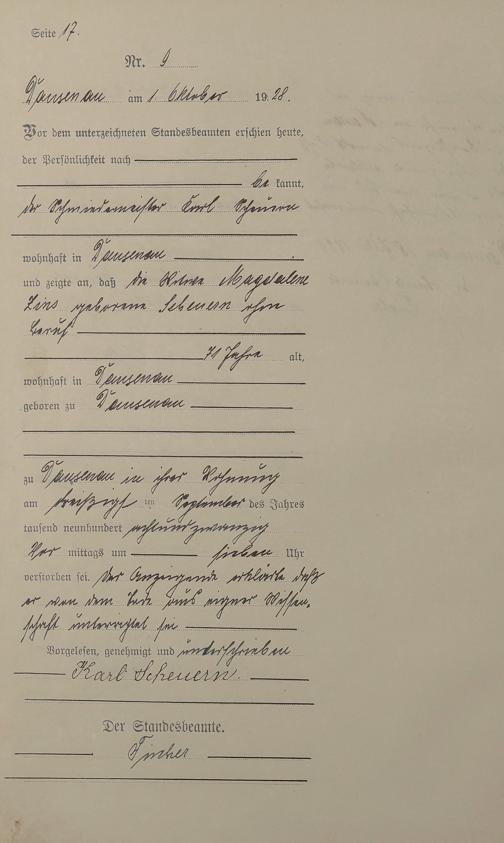 Seite 17.
Nr. 9
Dausenau am 1 Oktober 1928.
Vor dem unterzeichneten Standesbeamten erschien heute,
der Persönlichkeit nach
be kannt,
der Schmiedemeister Karl Scheuern
wohnhaft in Dausenau
und zeigte an, daß die Witwe Magdalene
Zins geborene Scheuern ohne
Beruf
71 Jahre alt,
wohnhaft in Dausenau
geboren zu Dausenau
zu Dausenau in ihrer Wohnung
am dreißigst ten September des Jahres
tausend neunhundert achtundzwanzig
Vor mittags um sieben Uhr
verstorben sei. Der Anzeigende erklärte daß
er von dem Tode aus eigner Wissen-
schaft unterrichtet sei
Vorgelesen, genehmigt und unterschrieben
Karl Scheuern.
Der Standesbeamte.